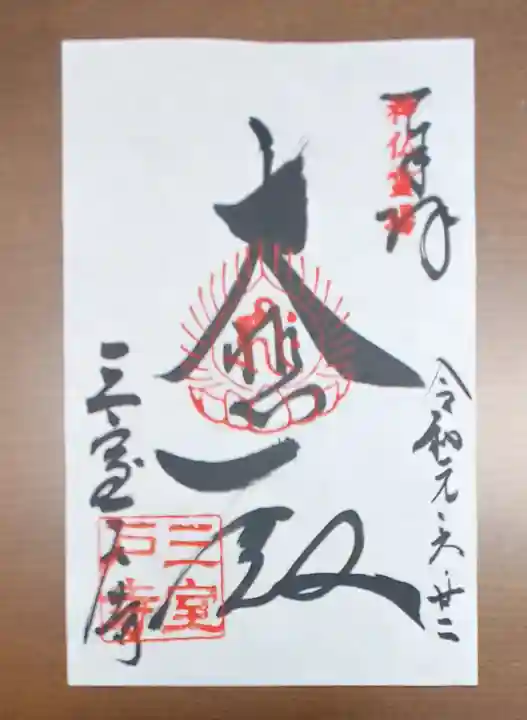 奉拝
神仏霊場
令和元・六・廿二
大悲殿
三室戸寺
三室
戸寺